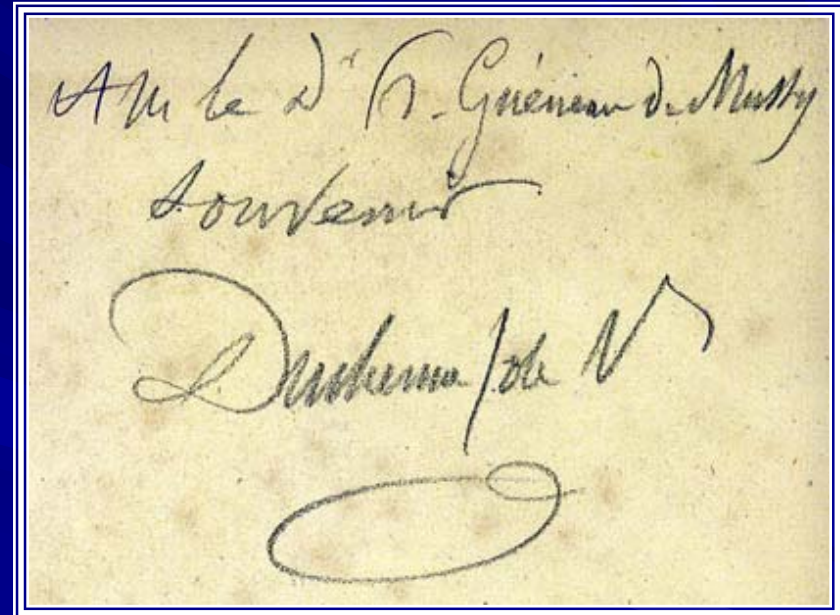 A M le Dr G. Guéneau de Mussy
Souvenir
Duchenne (de B